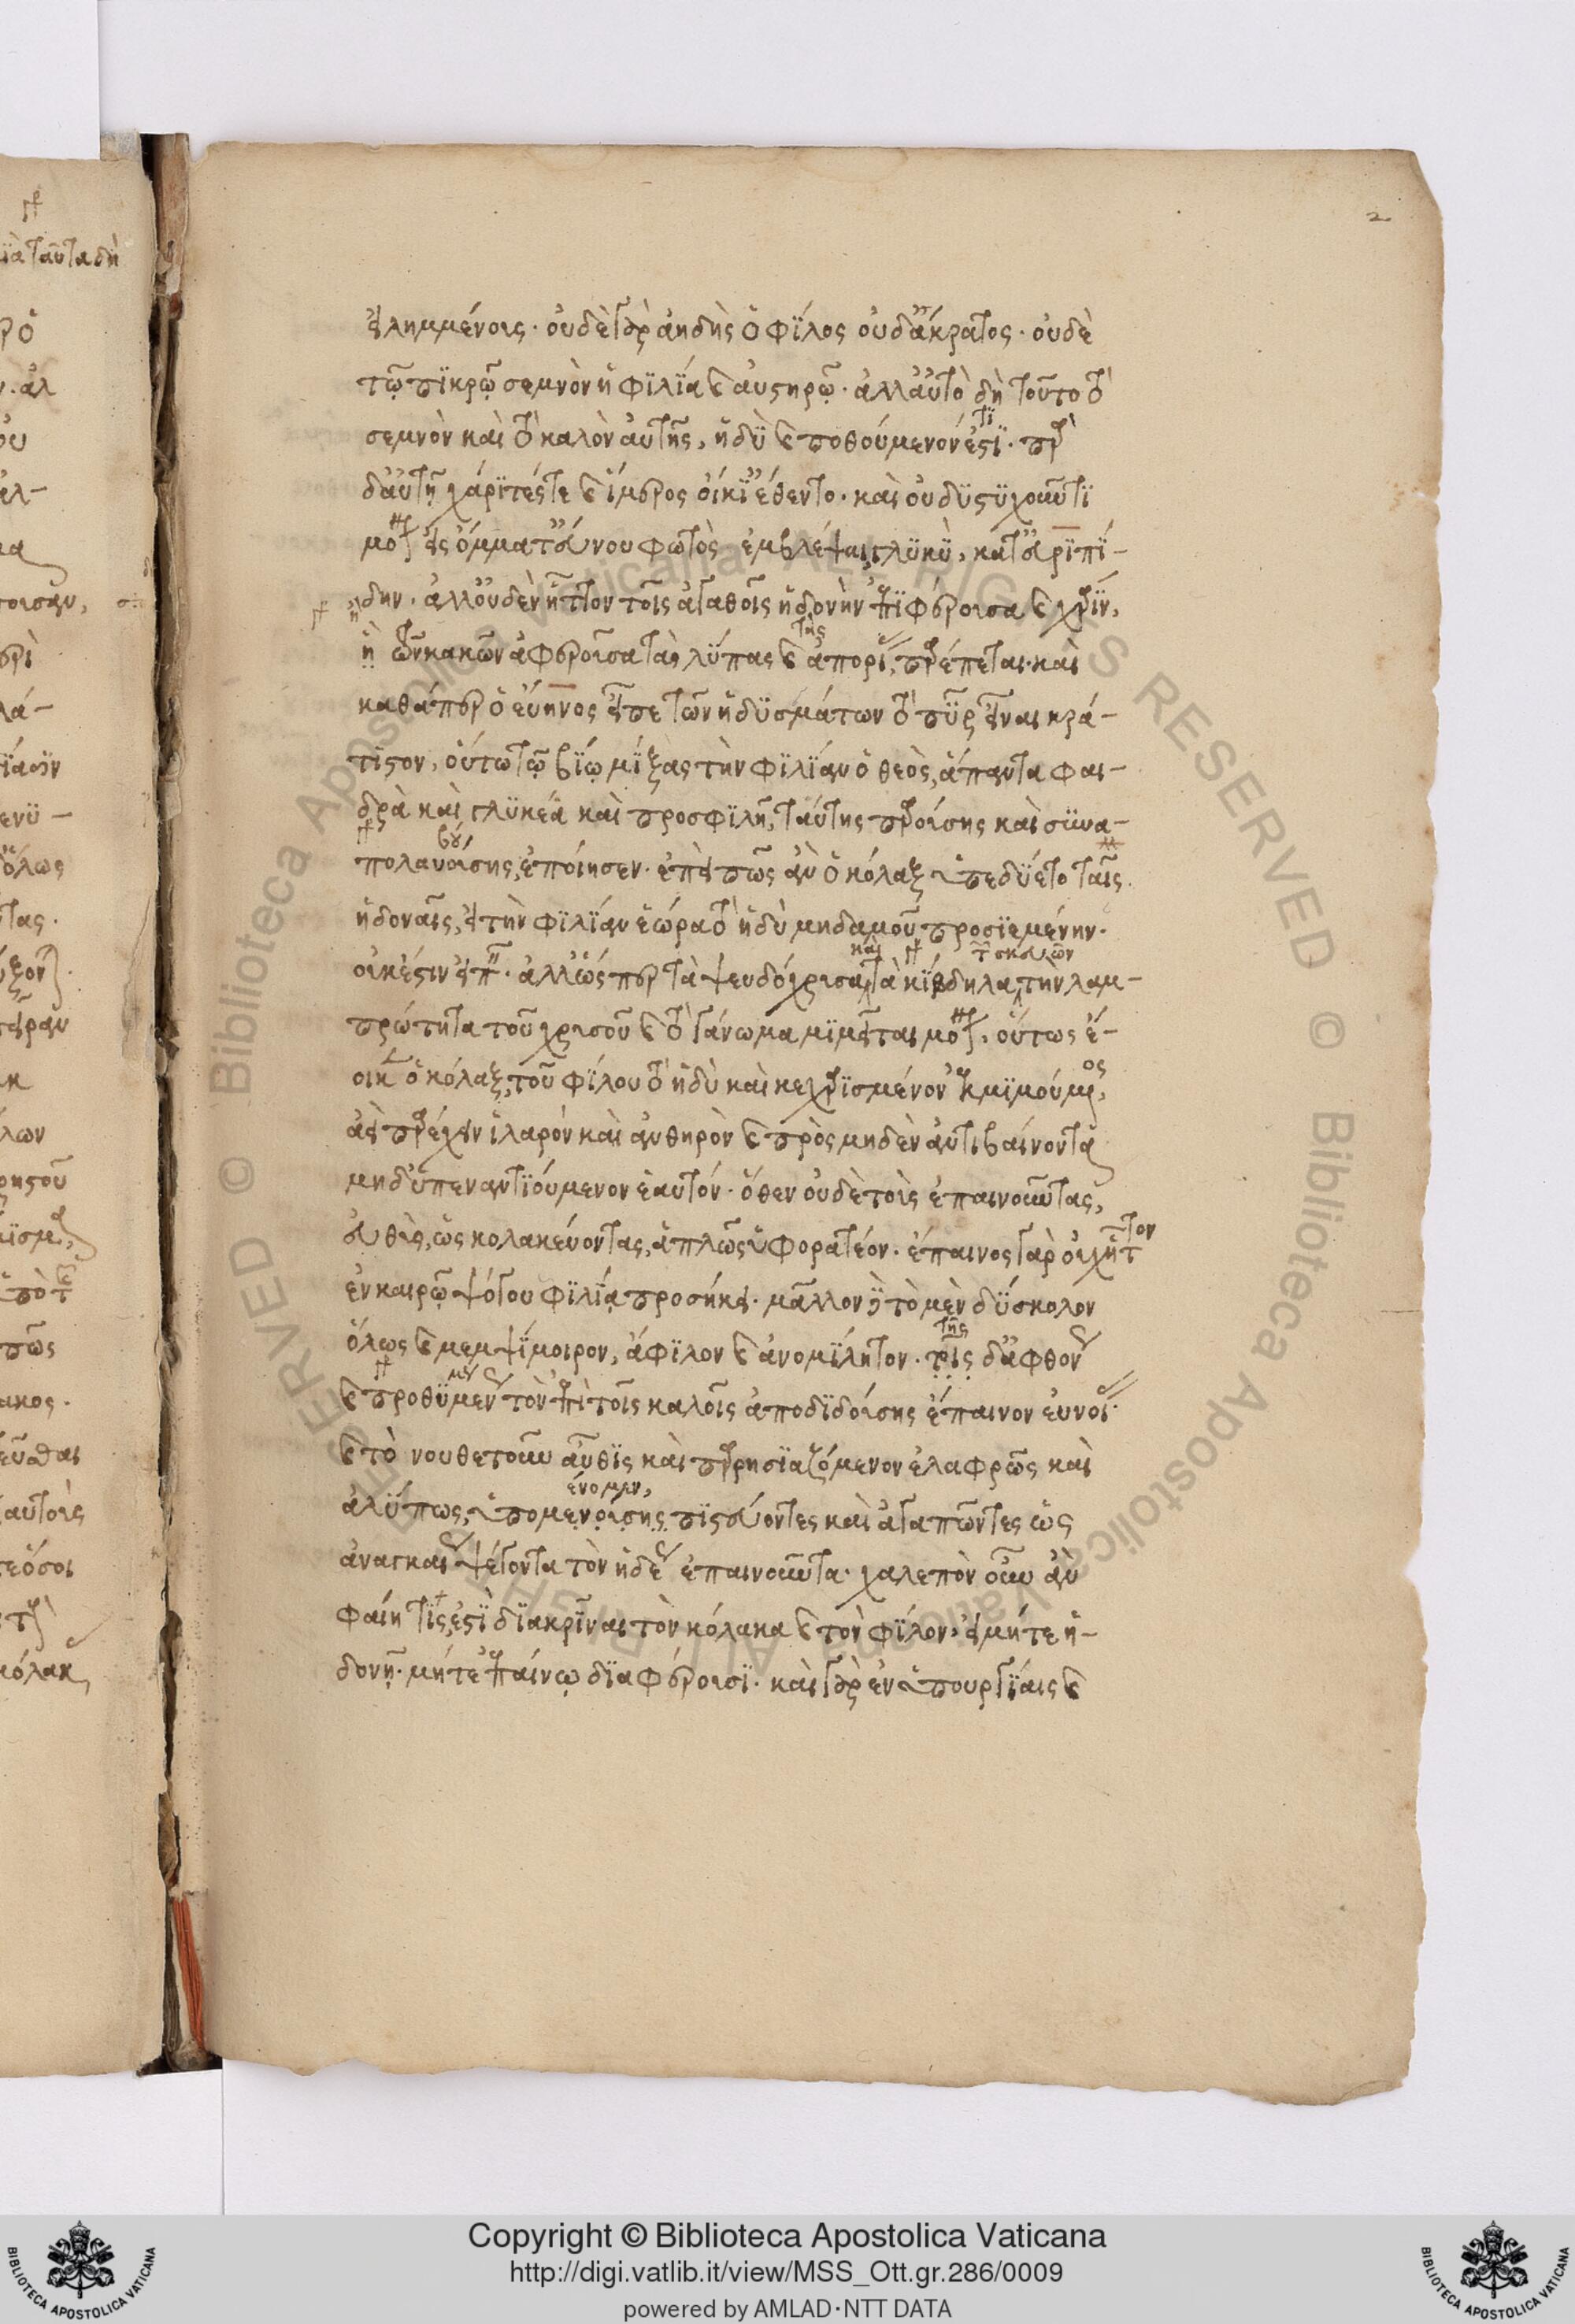 2
εἰλημμένοις· οὐδὲ γὰρ ἀηδὴς ὁ φίλος οὐδ' ἄκρατος· οὐδὲ
τῷ πικρῷ σεμνὸν ἡ φιλία καὶ αὐστηρῷ· ἀλλ' αὐτὸ δὴ τοῦτο τὸ
σεμνὸν καὶ τὸ καλὸν αὐτῆς, ἡδὺ καὶ ποθούμενόν ἐστι· παρὰ
δ' αὐτῇ χάριτές τε καὶ ἵμερος οἰκί' ἔθεντο· καὶ οὐ δυστυχοῦντι
μόνον εἰς ὄμματ' εὔνου φωτὸς ἐμβλέψαι γλυκὺ, κατ' εὐριπί-
δην· ἀλλ' οὐδὲν ἧττον τοῖς ἀγαθοῖς ἡδονὴν ἐπιφέρουσα καὶ χάριν,
ἢ τῶν κακῶν ἀφαιροῦσα τὰς λύπας καὶ τὰς ἀπορίας, παρέπεται· καὶ
καθάπερ ὁ εὔηνος εἶπε τῶν ἡδυσμάτων τὸ πῦρ εἶναι κρά-
τιστον, οὕτω τῷ βίῳ μίξας τὴν φιλίαν ὁ θεὸς, ἅπαντα φαι-
δρὰ καὶ γλυκέα καὶ προσφιλῆ, ταύτης παρούσης καὶ συνα-
πολαυούσης, ἐποίησεν· ἐπεὶ πῶς ἂν ὁ κόλαξ ὑπεδύετο ταῖς
ἡδοναῖς, εἰ τὴν φιλίαν ἑώρα τὸ ἡδὺ μηδαμοῦ προσιεμένην·
οὐκ ἔστιν εἰπεῖν· ἀλλ' ὥσπερ τὰ ψευδόχρυσα καὶ τὰ κίβδηλα, τὴν λαμ-
πρότητα τοῦ χρυσοῦ καὶ τὸ γάνωμα μιμεῖται μόνον, οὕτως ἔ-
οικεν ὁ κόλαξ, τοῦ φίλου τὸ ἡδὺ καὶ κεχαρισμένον ἐκμιμούμενος,
ἀεὶ παρέχειν ἱλαρὸν καὶ ἀνθηρὸν καὶ πρὸς μηδὲν ἀντιβαίνοντα
μηδ' ὑπεναντιούμενον ἑαυτόν· ὅθεν οὐδὲ τοὺς ἐπαινοῦντας,
εὐθὺς, ὡς κολακεύοντας, ἁπλῶς ὑφορατέον· ἔπαινος γὰρ οὐχ ἧττον
ἐν καιρῷ ψόγου φιλίᾳ προσήκει· μᾶλλον δὲ τὸ μὲν δύσκολον
ὅλως καὶ μεμψίμοιρον, ἄφιλον καὶ ἀνομίλητον· τῆς δ' ἀφθόνως
καὶ προθύμως τὸν ἐπὶ τοῖς καλοῖς ἀποδιδούσης ἔπαινον εὐνοίας·
καὶ τὸ νουθετοῦν αὖθις καὶ παρρησιαζόμενον ἐλαφρῶς καὶ
ἀλύπως, ὑπομενούσης πιστεύοντες καὶ ἀγαπῶντες ὡς
ἀναγκαίως ψέγοντα τὸν ἡδέως ἐπαινοῦντα· χαλεπὸν οὖν ἂν
φαίη τίς, ἐστὶ διακρῖναι τὸν κόλακα καὶ τὸν φίλον, εἰ μήτε ἡ-
δονῇ· μήτε ἐπαίνῳ διαφέρουσι· καὶ γὰρ ἐν ὑπουργίαις καὶ
Copyright © Biblioteca Apostolica Vaticana
http://digi.vatlib.it/view/MSS_Ott.gr.286/0009
powered by AMLAD·NTT DATA